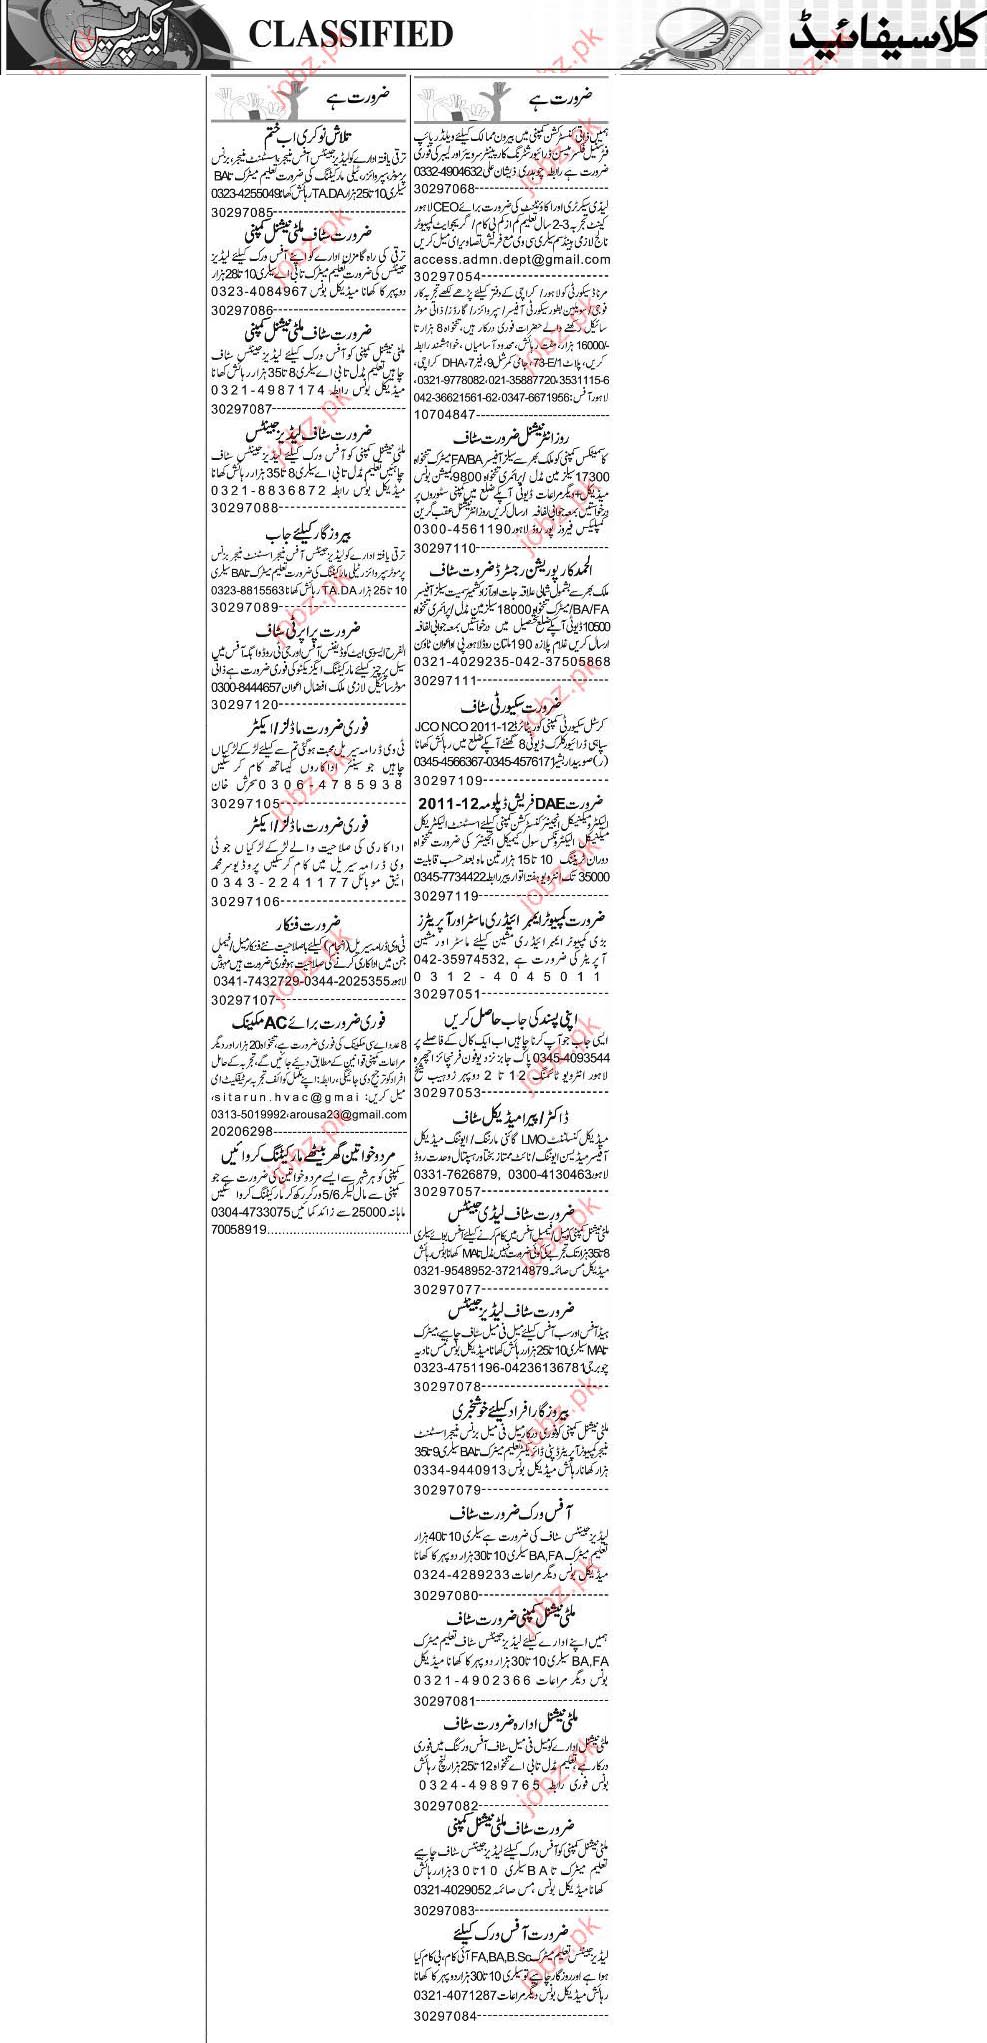 ایکسپریس
CLASSIFIED
کلاسیفائیڈ
ضرورت ہے
ہمیں ذاتی کنسٹرکشن کمپنی میں بیرون ممالک کیلئے ویلڈر پائپ
فٹر سٹیل فکسر میسن ڈرائیور شٹرنگ کارپینٹر سرویئر اور لیبر کی فوری
ضرورت ہے رابطہ چوہدری ذیشان علی 0332-4904632
30297068
لیڈی سیکرٹری اور اکاؤنٹنٹ کی ضرورت برائے CEO لاہور
کینٹ تجربہ 3-2 سال تعلیم کم از کم بی کام / گریجوایٹ کمپیوٹر
نالج لازمی ہینڈسم سیلری سی وی مع فریش تصاویر ای میل کریں
access.admn.dept@gmail.com
30297054
سیکورٹی کو لاہور / کراچی کے دفتر کیلئے پڑھے لکھے تجربہ کار
فوجی / سویلین بطور سیکورٹی آفیسر / سپروائزر / گارڈز / ذاتی موٹر
سائیکل رکھنے والے حضرات فوری درکار ہیں، تنخواہ 8 ہزار تا
16000/- ہزار، مفت رہائش، محدود آسامیاں، خواہشمند رابطہ
کریں، پلاٹ 73-E/1، جامی کمرشل 9، فیز 7، DHA کراچی،
021-35887720،3531115-6، 0321-9778082،
لاہور آفس: 0347-6671956، 042-36621561-62
10704847
روز انٹرنیشنل ضرورت سٹاف
کاسمیٹکس کمپنی کو ملک بھر سے سیلز آفیسر FA/BA میٹرک تنخواہ
17300 سیلز مین مڈل / پرائمری تنخواہ 9800 کمیشن بونس
میڈیکل + دیگر مراعات ڈیوٹی آپکے ضلع میں کمپنی سٹوروں پر
درخواستیں بمعہ جوابی لفافہ ارسال کریں روز انٹرنیشنل عقب گرین
کمپلیکس فیروز پور روڈ لاہور 0300-4561190
30297110
الحمد کارپوریشن رجسٹرڈ ضرورت سٹاف
ملک بھر سے بشمول شمالی علاقہ جات اور آزاد کشمیر سمیت سیلز آفیسر
BA/FA/ میٹرک تنخواہ 18000 سیلز مین مڈل / پرائمری تنخواہ
10500 ڈیوٹی آپکے ضلع تحصیل میں درخواستیں بمعہ جوابی لفافہ
ارسال کریں غلام پلازہ 190 ملتان روڈ لاہور پی او اعوان ٹاؤن
0321-4029235-042-37505868
30297111
ضرورت سکیورٹی سٹاف
کرسٹل سکیورٹی کمپنی کو ریٹائرڈ 12-2011 JCO NCO
سپاہی ڈرائیور کلرک ڈیوٹی 8 گھنٹے آپکے ضلع میں رہائش کھانا
(ر) صوبیدار بشیر 0345-4566367-0345-4576171
30297109
ضرورت DAE فریش ڈپلومہ 12-2011
الیکٹرو میکینکل انجینئر کنسٹرکشن کمپنی کیلئے اسسٹنٹ الیکٹریکل
میکینکل الیکٹرونکس سول کیمیکل انجینئر کی ضرورت تنخواہ
دوران ٹریننگ 10 تا 15 ہزار تین ماہ بعد حسب قابلیت
35000 تک انٹرویو ہفتہ اتوار پیر رابطہ 0345-7734422
30297119
ضرورت کمپیوٹر ایمبرائیڈری ماسٹر اور آپریٹرز
بڑی کمپیوٹر ایمبرائیڈری مشین کیلئے ماسٹر اور مشین
آپریٹر کی ضرورت ہے 042-35974532,
0312-4045011
30297051
اپنی پسند کی جاب حاصل کریں
ایسی جاب جو آپ کرنا چاہیں اب ایک کال کے فاصلے پر
0345-4093544 پاک جابز نزد یوفون فرنچائز اچھرہ
لاہور انٹرویو ٹائمنگ 12 تا 2 دوپہر زوہیب شیخ
30297053
ڈاکٹر / پیرا میڈیکل سٹاف
میڈیکل کنسلٹنٹ LMO گائنی مارننگ / ایوننگ میڈیکل
آفیسر میڈیسن ایوننگ / نائٹ ممتاز بختاور ہسپتال وحدت روڈ
لاہور 0300-4130463 ,0331-7626879
30297057
ضرورت سٹاف لیڈی جینٹس
ملٹی نیشنل کمپنی کو میل فیمیل آفس میں کام کرنے کیلئے آفس بوائے سیلری
8 تا 35 ہزار تک تجربے کی کوئی ضرورت نہیں مڈل تا MA کھانا بونس رہائش
میڈیکل مس صائمہ 37214879-0321-9548952
30297077
ضرورت سٹاف لیڈیز جینٹس
ہیڈ آفس اور سب آفس کیلئے میل فی میل سٹاف چاہیے میٹرک
تا MA سیلری 10 تا 25 ہزار رہائش کھانا میڈیکل بونس مس نادیہ
چوبرجی 04236136781-0323-4751196
30297078
بیروزگار افراد کیلئے خوشخبری
ملٹی نیشنل کمپنی کو فوری درکار میل فی میل بزنس منیجر اسسٹنٹ
منیجر کمپیوٹر آپریٹر ڈپٹی ڈائریکٹر تعلیم میٹرک تا BA سیلری 9 تا 35
ہزار کھانا رہائش میڈیکل بونس 0334-9440913
30297079
آفس ورک ضرورت سٹاف
لیڈیز جینٹس سٹاف کی ضرورت ہے سیلری 10 تا 40 ہزار
تعلیم میٹرک BA,FA سیلری 10 تا 30 ہزار دوپہر کا کھانا
میڈیکل بونس دیگر مراعات 0324-4289233
30297080
ملٹی نیشنل کمپنی ضرورت سٹاف
ہمیں اپنے ادارے کیلئے لیڈیز جینٹس سٹاف تعلیم میٹرک
BA,FA سیلری 10 تا 30 ہزار دوپہر کا کھانا میڈیکل
بونس دیگر مراعات 0321-4902366
30297081
ملٹی نیشنل ادارہ ضرورت سٹاف
ملٹی نیشنل ادارے کو میل فی میل سٹاف آفس ورکنگ میں فوری
درکار ہے تعلیم مڈل تا بی اے تنخواہ 12 تا 25 ہزار لنچ رہائش
بونس فوری رابطہ 0324-4989765
30297082
ضرورت سٹاف ملٹی نیشنل کمپنی
ملٹی نیشنل کمپنی کو آفس ورک کیلئے لیڈیز جینٹس سٹاف چاہیے
تعلیم میٹرک تا BA سیلری 10 تا 30 ہزار رہائش
کھانا میڈیکل بونس مس صائمہ 0321-4029052
30297083
ضرورت آفس ورک کیلئے
لیڈیز جینٹس تعلیم میٹرک FA,BA,B.Sc آئی کام، بی کام کیا
ہوا ہے اور روزگار چاہیے تو سیلری 10 تا 30 ہزار دوپہر کا کھانا
رہائش میڈیکل بونس دیگر مراعات 0321-4071287
30297084
ضرورت ہے
تلاش نوکری اب ختم
ترقی یافتہ ادارے کو لیڈیز جینٹس آفس منیجر، اسسٹنٹ منیجر، بزنس
پرموٹر سپروائزر، ٹیلی مارکیٹنگ کی ضرورت تعلیم میٹرک تا BA
سیلری 10 تا 25 ہزار TA.DA رہائش کھانا 0323-4255049
30297085
ضرورت سٹاف ملٹی نیشنل کمپنی
ترقی کی راہ گامزن ادارے کو اپنے آفس ورک کیلئے لیڈیز
جینٹس کی ضرورت تعلیم میٹرک تا بی اے سیلری 10 تا 28 ہزار
دوپہر کا کھانا میڈیکل بونس 0323-4084967
30297086
ضرورت سٹاف ملٹی نیشنل کمپنی
ملٹی نیشنل کمپنی کو آفس ورک کیلئے لیڈیز جینٹس سٹاف
چاہیں تعلیم مڈل تا بی اے سیلری 8 تا 35 ہزار رہائش کھانا
میڈیکل بونس رابطہ 0321-4987174
30297087
ضرورت سٹاف لیڈیز جینٹس
ملٹی نیشنل کمپنی کو آفس ورک کیلئے لیڈیز جینٹس سٹاف
چاہئیں تعلیم مڈل تا بی اے سیلری 8 تا 35 ہزار رہائش کھانا
میڈیکل بونس رابطہ 0321-8836872
30297088
بیروزگار کیلئے جاب
ترقی یافتہ ادارے کو لیڈیز جینٹس آفس منیجر اسسٹنٹ منیجر بزنس
پرموٹر سپروائزر ٹیلی مارکیٹنگ کی ضرورت تعلیم میٹرک تا BA سیلری
10 تا 25 ہزار TA.DA رہائش کھانا 0323-8815563
30297089
ضرورت پراپرٹی سٹاف
الفرح ایسوسی ایٹ کو ڈیفنس آفس اور جی ٹی روڈ واہگہ آفس میں
سیل پرچیز کیلئے مارکیٹنگ ایگزیکٹو کی فوری ضرورت ہے ذاتی
موٹر سائیکل لازمی ملک افضال اعوان 0300-8444657
30297120
فوری ضرورت ماڈلز / ایکٹر
ٹی وی ڈرامہ سیریل محبت ہوگئی تم سے کیلئے لڑکے لڑکیاں
چاہیں جو سینئر اداکاروں کیساتھ کام کر سکیں
0306-4785938 سحرش خان
30297105
فوری ضرورت ماڈلز / ایکٹر
اداکاری کی صلاحیت والے لڑکے لڑکیاں جو ٹی
وی ڈرامہ سیریل میں کام کر سکیں پروڈیوسر محمد
انیق موبائل 0343-2241177
30297106
ضرورت فنکار
ٹی وی ڈرامہ سیریل (انجام) کیلئے باصلاحیت نئے فنکار میل / فیمیل
جن میں اداکاری کرنے کی صلاحیت ہو فوری ضرورت ہیں مہوش
لاہور 0344-2025355-0341-7432729
30297107
فوری ضرورت برائے AC مکینک
8 عدد اے سی مکینک کی فوری ضرورت ہے، تنخواہ 20 ہزار اور دیگر
مراعات کمپنی قوانین کے مطابق دیئے جائیں گے، تجربہ کے حامل
افراد کو ترجیح دی جائیگی، رابطہ: اپنے مکمل کوائف تجربہ سرٹیفکیٹ ای
میل کریں: sitarun.hvac@gmai،
0313-5019992،arousa23@gmail.com
20206298
مرد و خواتین گھر بیٹھے مارکیٹنگ کروائیں
کمپنی کو ہر شہر سے ایسے مرد و خواتین کی ضرورت ہے جو
کمپنی سے مال لیکر 5/6 ورکر رکھ کر مارکیٹنگ کروا سکیں
ماہانہ 25000 سے زائد کمائیں 0304-4733075
70058919